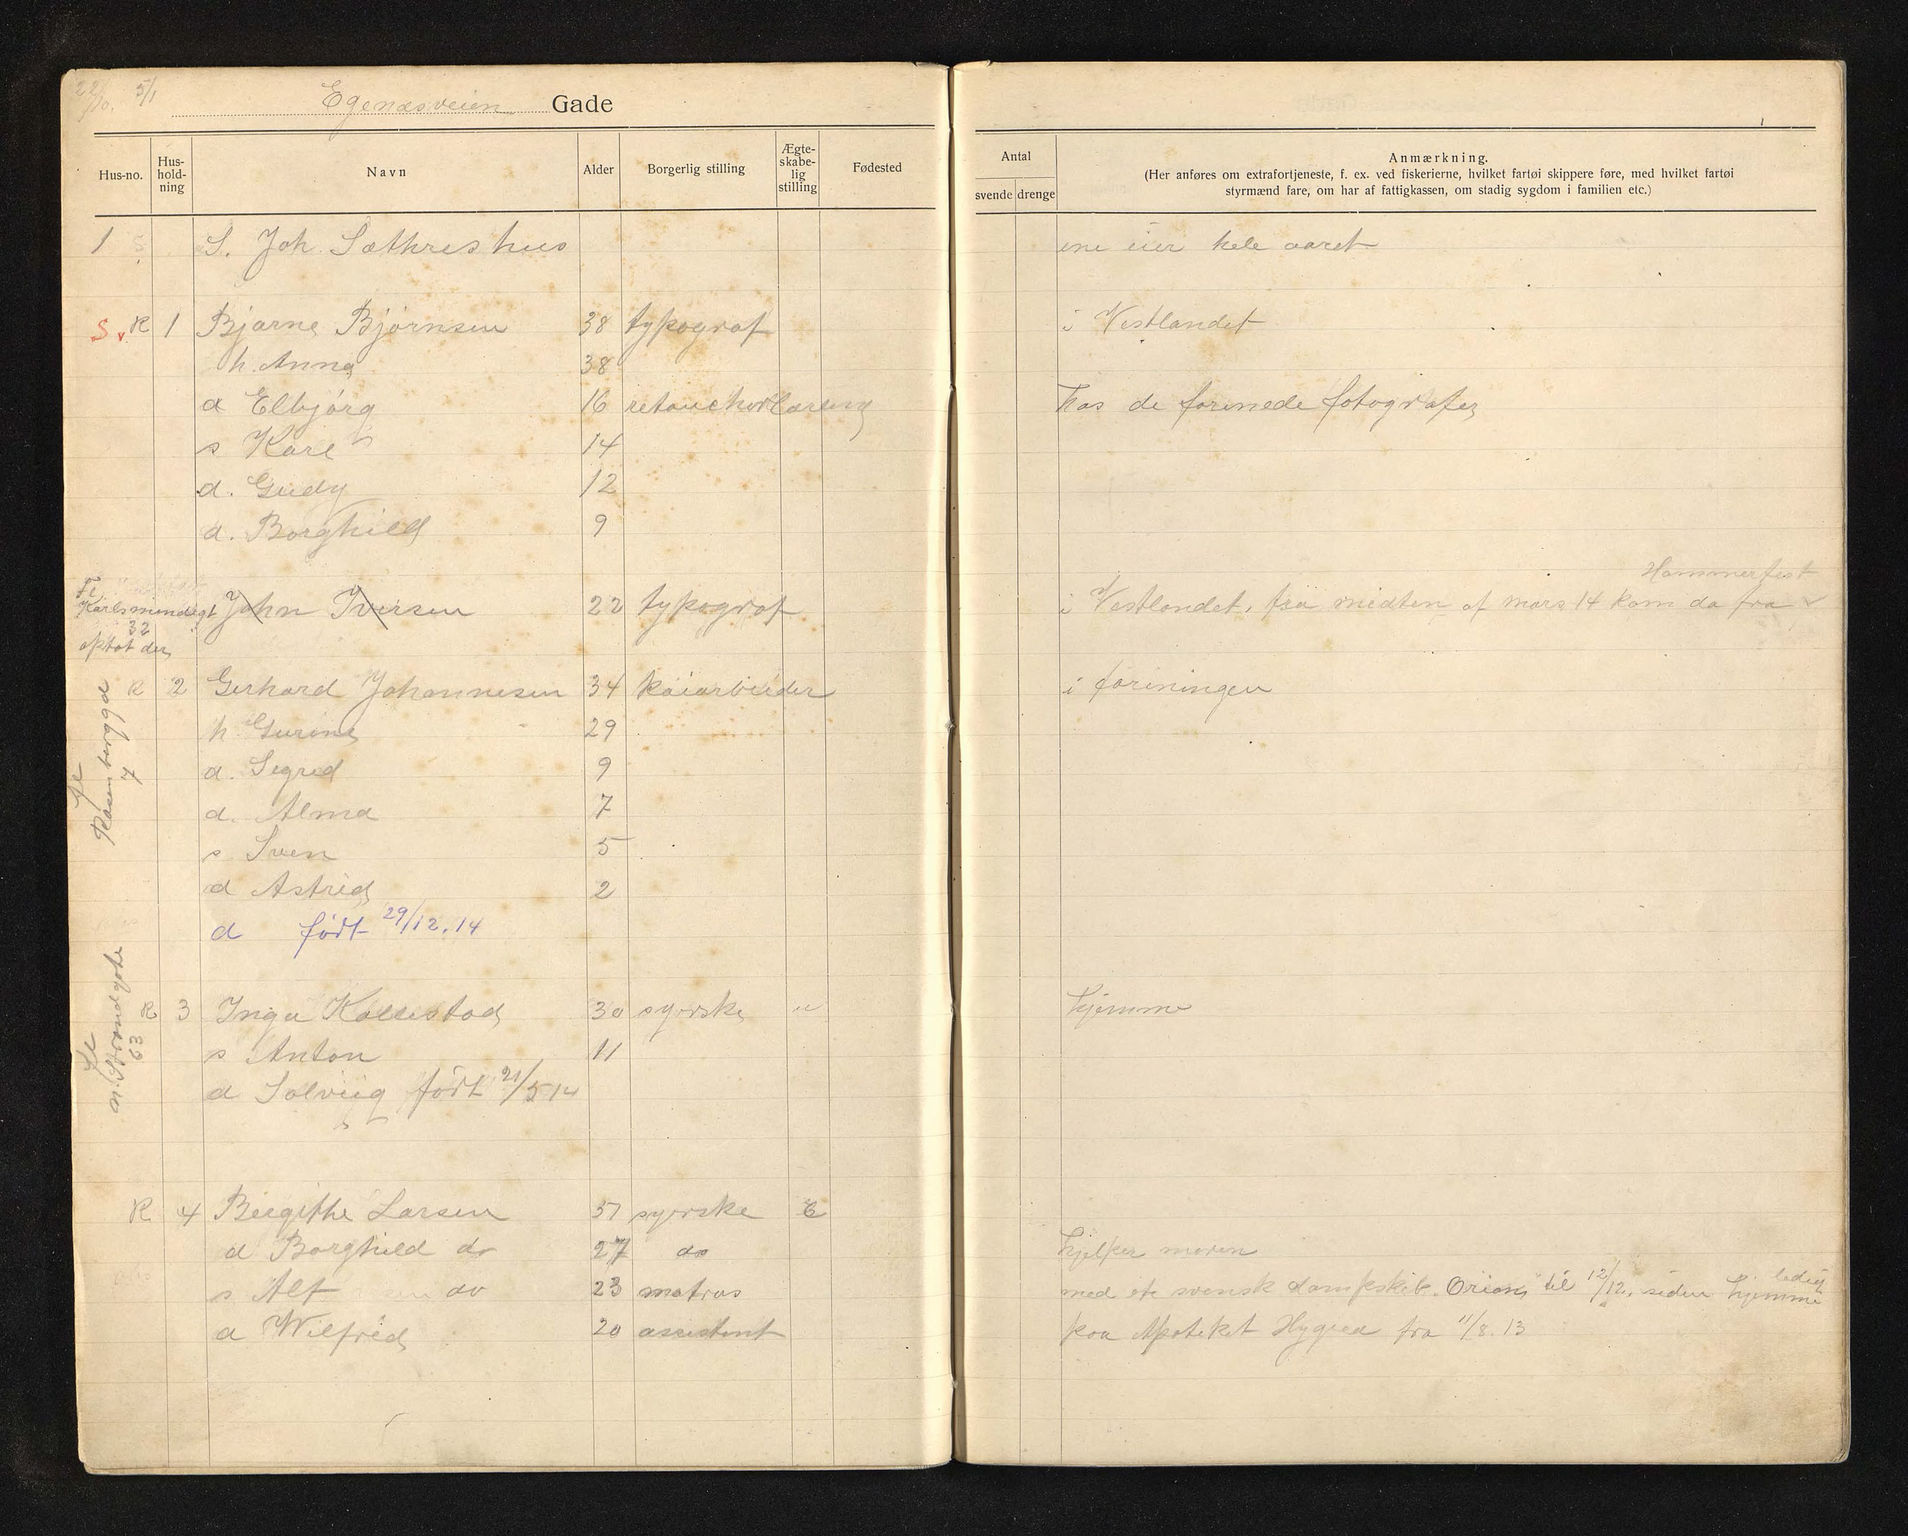 22/10. 5/1
Egenæsveien Gade
Hus-no. Hus-hold-ning Navn Alder Borgerlig stilling Ægte-skabe-lig stilling Fødested
Antal svende drenge
Anmærkning.
(Her anføres om extrafortjeneste, f. ex. ved fiskerierne, hvilket fartøi skippere føre, med hvilket fartøi
styrmænd fare, om har af fattigkassen, om stadig sygdom i familien etc.)
1 S. Joh. Sæthres hus ene eier hele aaret
S. R 1 Bjarne Bjørnsen 38 typograf i Vestlandet
h. Anna 38
d Elbjørg 16 retouchørlærling hos de forenede fotografer
s Kåre 14
d. Gudy 12
d. Borghild 9
Hammerfest
Fl. Karlsmindegt 32 John Iversen 22 typograf i Vestlandet, fra midten af mars 14 kom da fra
optat der
R 2 Gerhard Johannesen 34 kaiarbeider i foreningen
h. Gurine 29
d. Sigrid 9
d. Alma 7
s. Sven 5
d Astrid 2
d født 29/12.14
Se Rosenberggd 7
R 3 Inga Kollestad 30 syerske u hjemme
s Anton 11
d Solveig født 21/5 14
Se n. Strandgate 63
R 4 Birgithe Larsen 57 syerske E
d Borghild do 27 do hjelper moren
s Alf do 23 matros med et svensk dampskib. Orion, til 12/12, siden hjemme ledig
d Wilfred 20 assistent paa Apoteket Hygiea fra 11/8.13